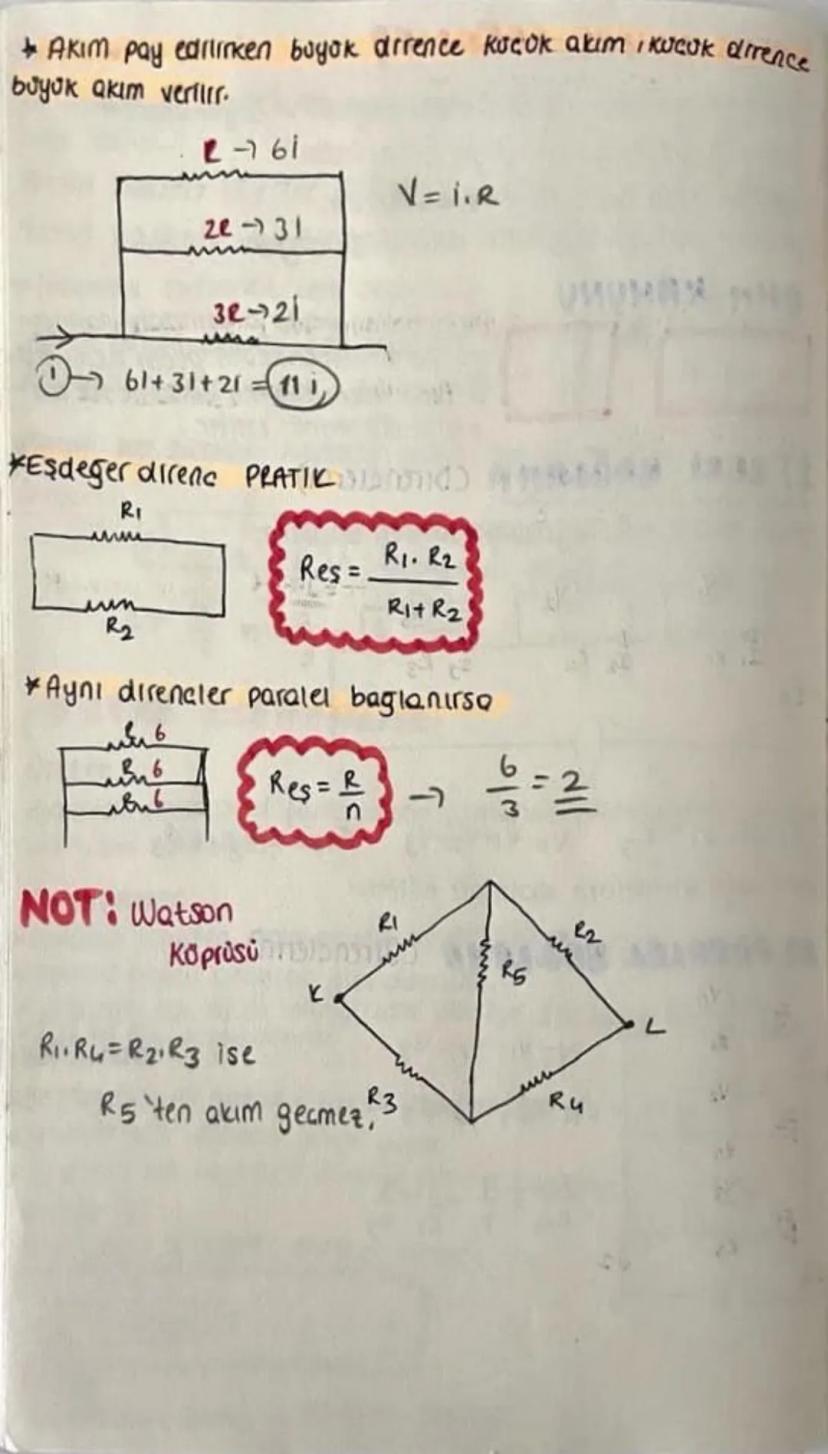 * Akım pay edilirken büyük dirence küçük akım, küçük dirence
büyük akım verilir.
R → 6i
V = i.R
2R → 3i
3R → 2i
i → 6i + 3i + 2i = 11 i
* Eşdeğer direnç PRATİK
R1
Reş = R1 . R2 / R1 + R2
R2
* Aynı dirençler paralel bağlanırsa
R 6
R 6
R 6
Reş = R / n → 6 / 3 = 2
NOT: Watson
Köprüsü
R1
R2
R5
K
L
R1.R4 = R2.R3 ise
R3
R4
R5'ten akım geçmez.